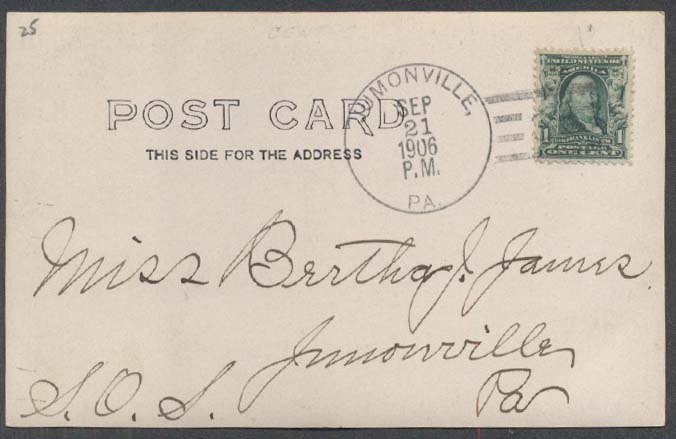 25
POST CARD
THIS SIDE FOR THE ADDRESS
JUMONVILLE,
SEP
21
1906
P.M.
PA.
UNITED STATES OF
AMERICA
1 FRANKLIN 1
POSTAGE
ONE CENT
Miss Bertha J. James.
Jumonville
Pa
S. O. S.